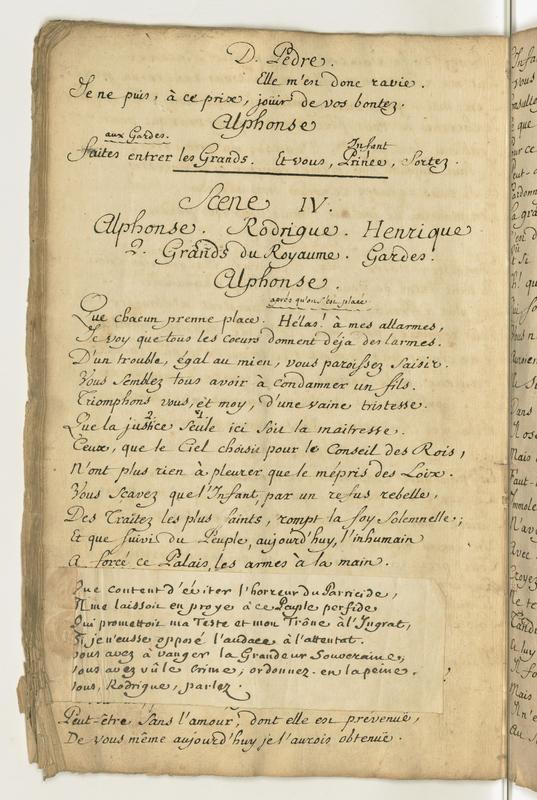 D. Pédre.
Elle m'est donc ravie.
Je ne puis, à ce prix, joüir de vos bontez.
Alphonse
aux Gardes. Infant
faites entrer les Grands. Et vous, Prince, Sortez.
Scene IV.
Alphonse. Rodrigue. Henrique
2. Grands du Royaume. Gardes.
Alphonse.
après qu'on s'est placé
Que chacun prenne place. Hélas! à mes allarmes,
Je voy que tous les coeurs donnent déja des larmes.
D'un trouble, égal au mien, vous paroissez Saisir.
Vous Semblez tous avoir à condamner un fils.
Triomphons vous, et moy, d'une vaine tristesse.
2 1
Que la justice Seule ici Soit la maitresse.
Ceux, que le Ciel choisit pour le Conseil des Rois,
N'ont plus rien à pleurer que le mépris des Loix.
Vous Sçavez que l'Infant, par un refus rebelle,
Des Traitez les plus Saints, rompt la foy Solemnelle;
Et que Suivi du Peuple, aujourd'huy, l'inhumain
A forcé ce Palais, les armes à la main.
Que content d'éviter l'horreur du Parricide,
Il me laissoit en proye à ce Peuple perfide
Qui promettoit ma Teste et mon Trône à l'Ingrat,
Si je n'eusse opposé l'audace à l'attentat.
Vous avez à vanger la Grandeur Souveraine;
Vous avez vû le Crime; ordonnez-en la peine.
Vous, Rodrigue, parlez
Peut-être Sans l'amour, dont elle est prévenuë,
De vous même aujourd'huy je l'aurois obtenuë.